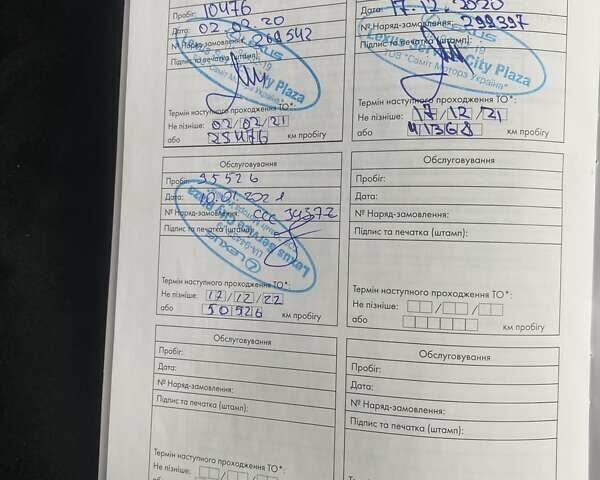 Пробіг: 10476
Дата: 02.02.20
№ Наряд-замовлення: 269542
Підпис та печатка (штамп):
LEXUS
City Plaza
Саміт Моторз Україна"
Термін наступного проходження ТО*:
Не пізніше: 02/02/21
або 25476 км пробігу
Дата: 17.12.2020
№ Наряд-замовлення: 299397
Підпис та печатка (штамп):
LEXUS
Lexus City Plaza
"Саміт Моторз Україна"
Термін наступного проходження ТО*:
Не пізніше: 17/12/21
або 41368 км пробігу
Обслуговування
Пробіг: 35526
Дата: 10.01.2021
№ Наряд-замовлення: СС 34372
Підпис та печатка (штамп):
Lexus Service City Plaza
LEXUS
Термін наступного проходження ТО*:
Не пізніше: 12/12/22
або 50526 км пробігу
Обслуговування
Пробіг:
Дата:
№ Наряд-замовлення:
Підпис та печатка (штамп):
Термін наступного проходження ТО*:
Не пізніше: / /
або км пробігу
Обслуговування
Пробіг:
Дата:
№ Наряд-замовлення:
Підпис та печатка (штамп):
Термін наступного проходження ТО*:
Не пізніше: / /
або
Обслуговування
Пробіг:
Дата:
№ Наряд-замовлення:
Підпис та печатка (штамп):
Термін наступного проходження ТО*: